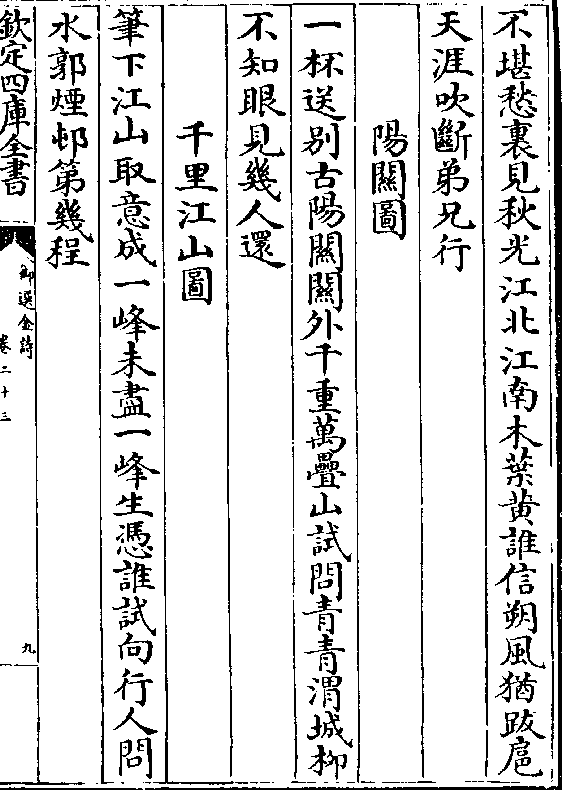 不堪愁裏見秋光江北江南木葉黄誰信朔風猶跋扈
天涯吹斷弟兄行
陽關圖
一杯送别古陽關關外千重萬疊山試問青青渭城柳
不知眼見幾人還
千里江山圖
筆下江山取意成一峰未盡一峰生憑誰試向行人問
水郭煙邨第幾程
欽定四庫全書
御選金詩
卷二十三
九